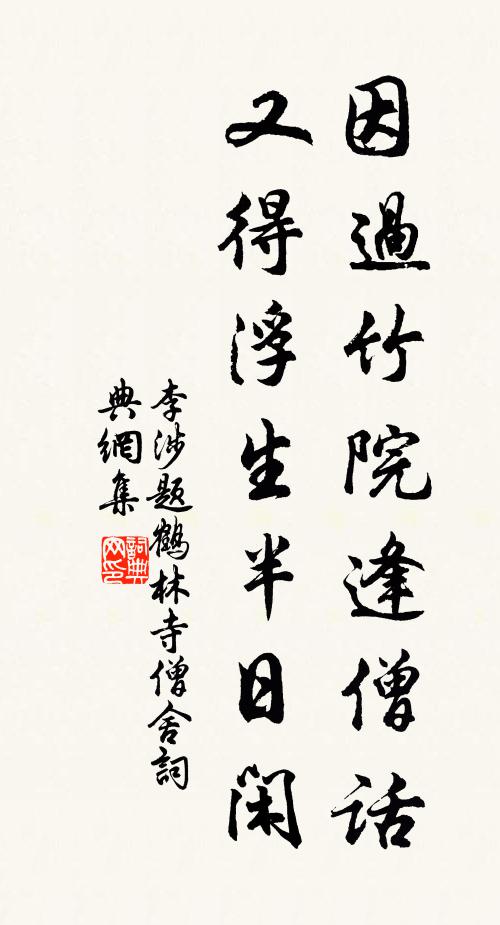 因過竹院逢僧話
又得浮生半日閑
李涉题鶴林寺僧舍詞
典網集
詞典网印